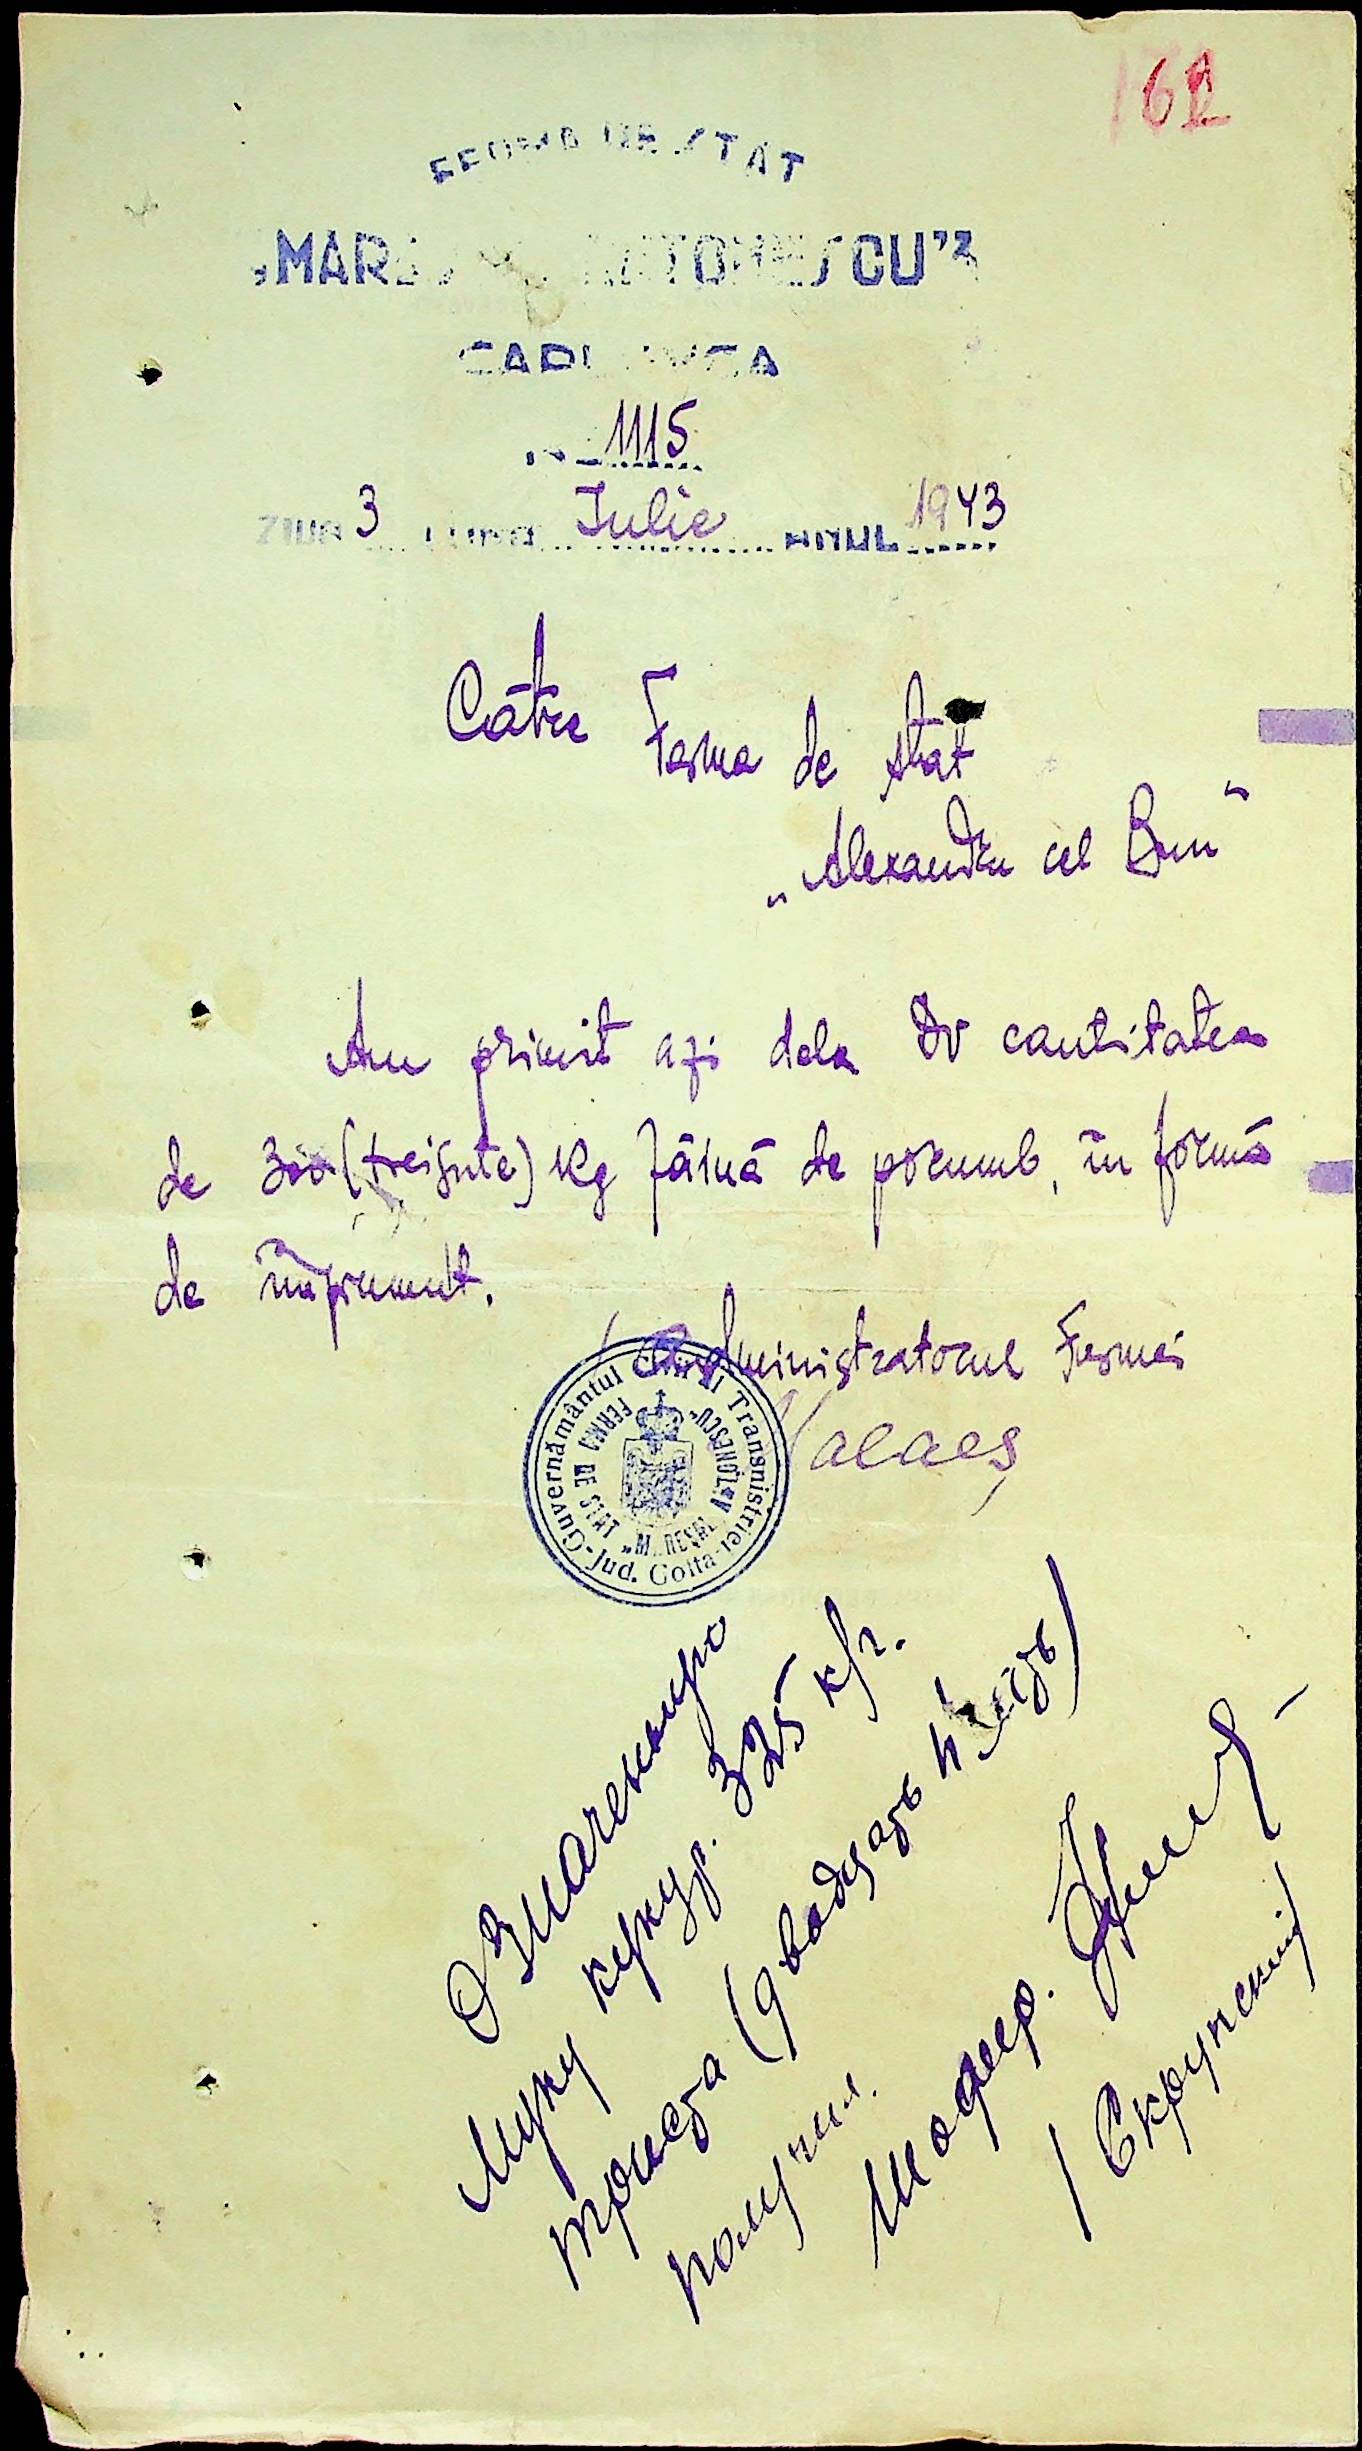 162
FERMA DE STAT
„MAREȘAL ANTONESCU”
No 1115
ZIUA 3 LUNA Iulie ANUL 1943
Către Ferma de stat
„Alexandru cel Bun”
Am primit azi dela Dv cantitatea
de 300 (treisute) kg făină de porumb, în formă
de împrumut.
Administratorul Fermei
Guvernământul Civil al Transnistriei - Jud. Golta -
FERMA DE STAT „MAREȘAL ANTONESCU”
Означенную
муку кукур. 325 к/г.
триста (двадцать пять)
получил.
Шофер.
/Скрупский/